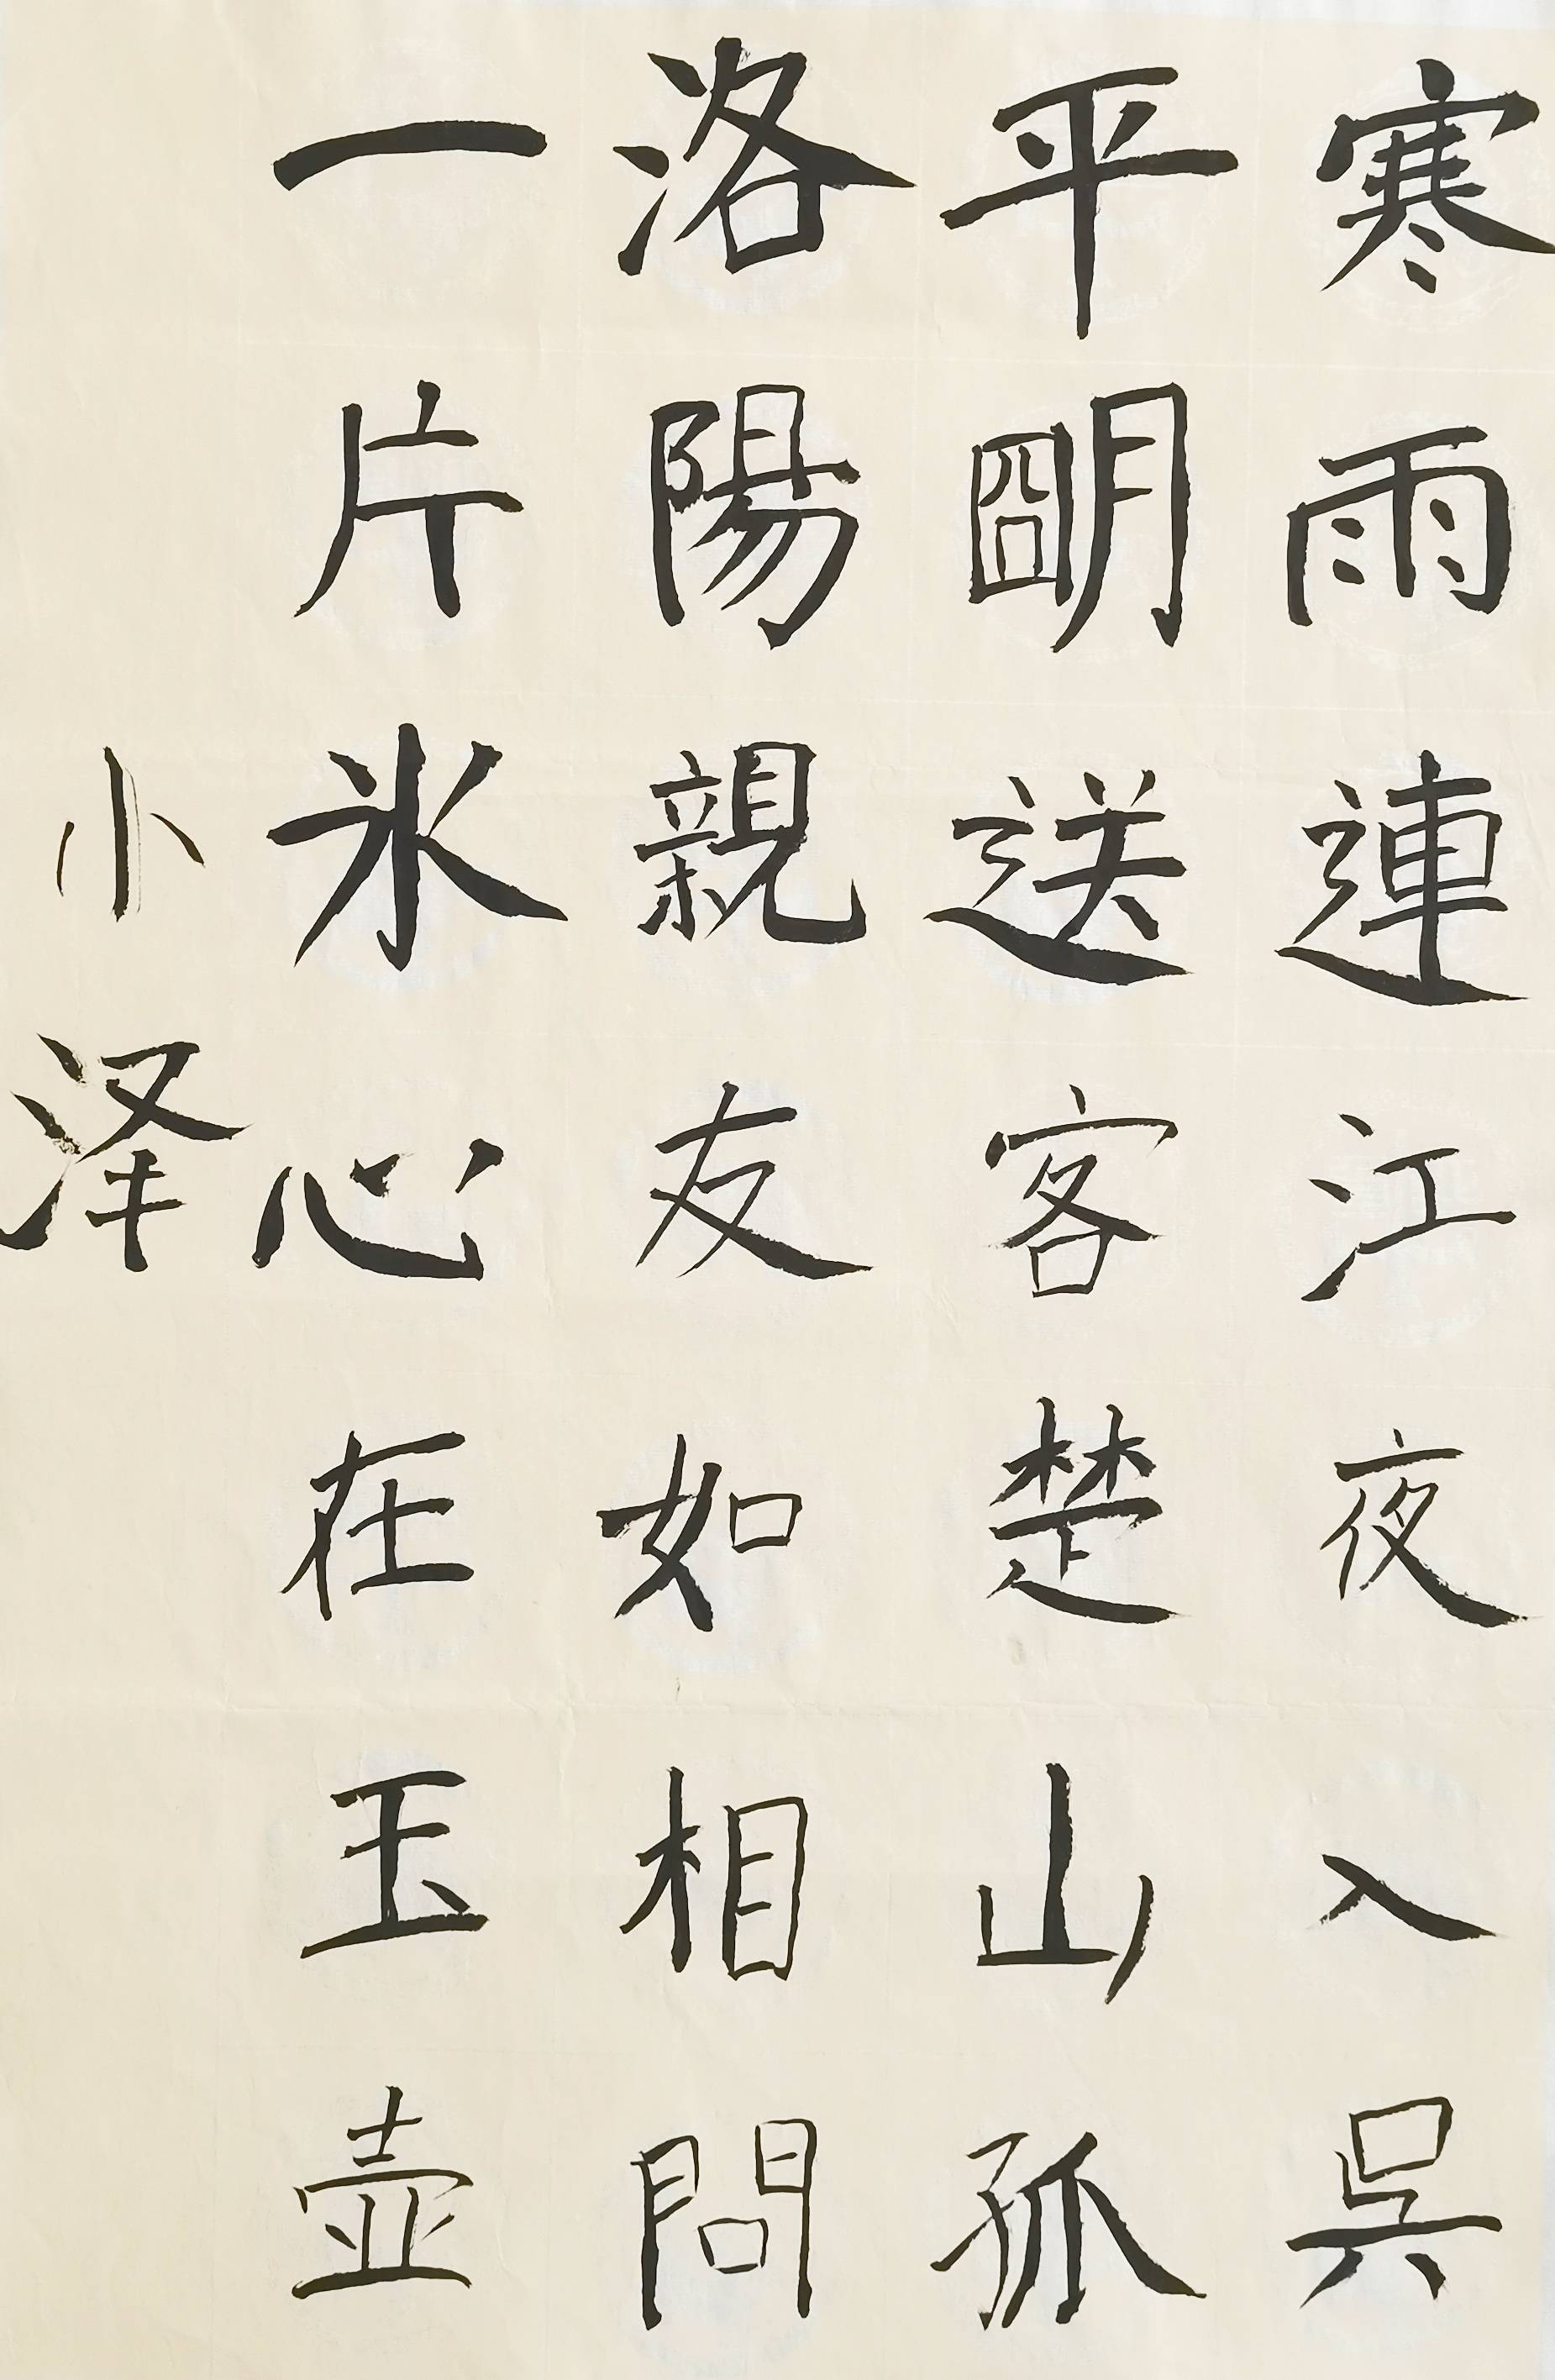 寒雨連江夜入吳
平朙送客楚山孤
洛陽親友如相問
一片氷心在玉壺
小泽